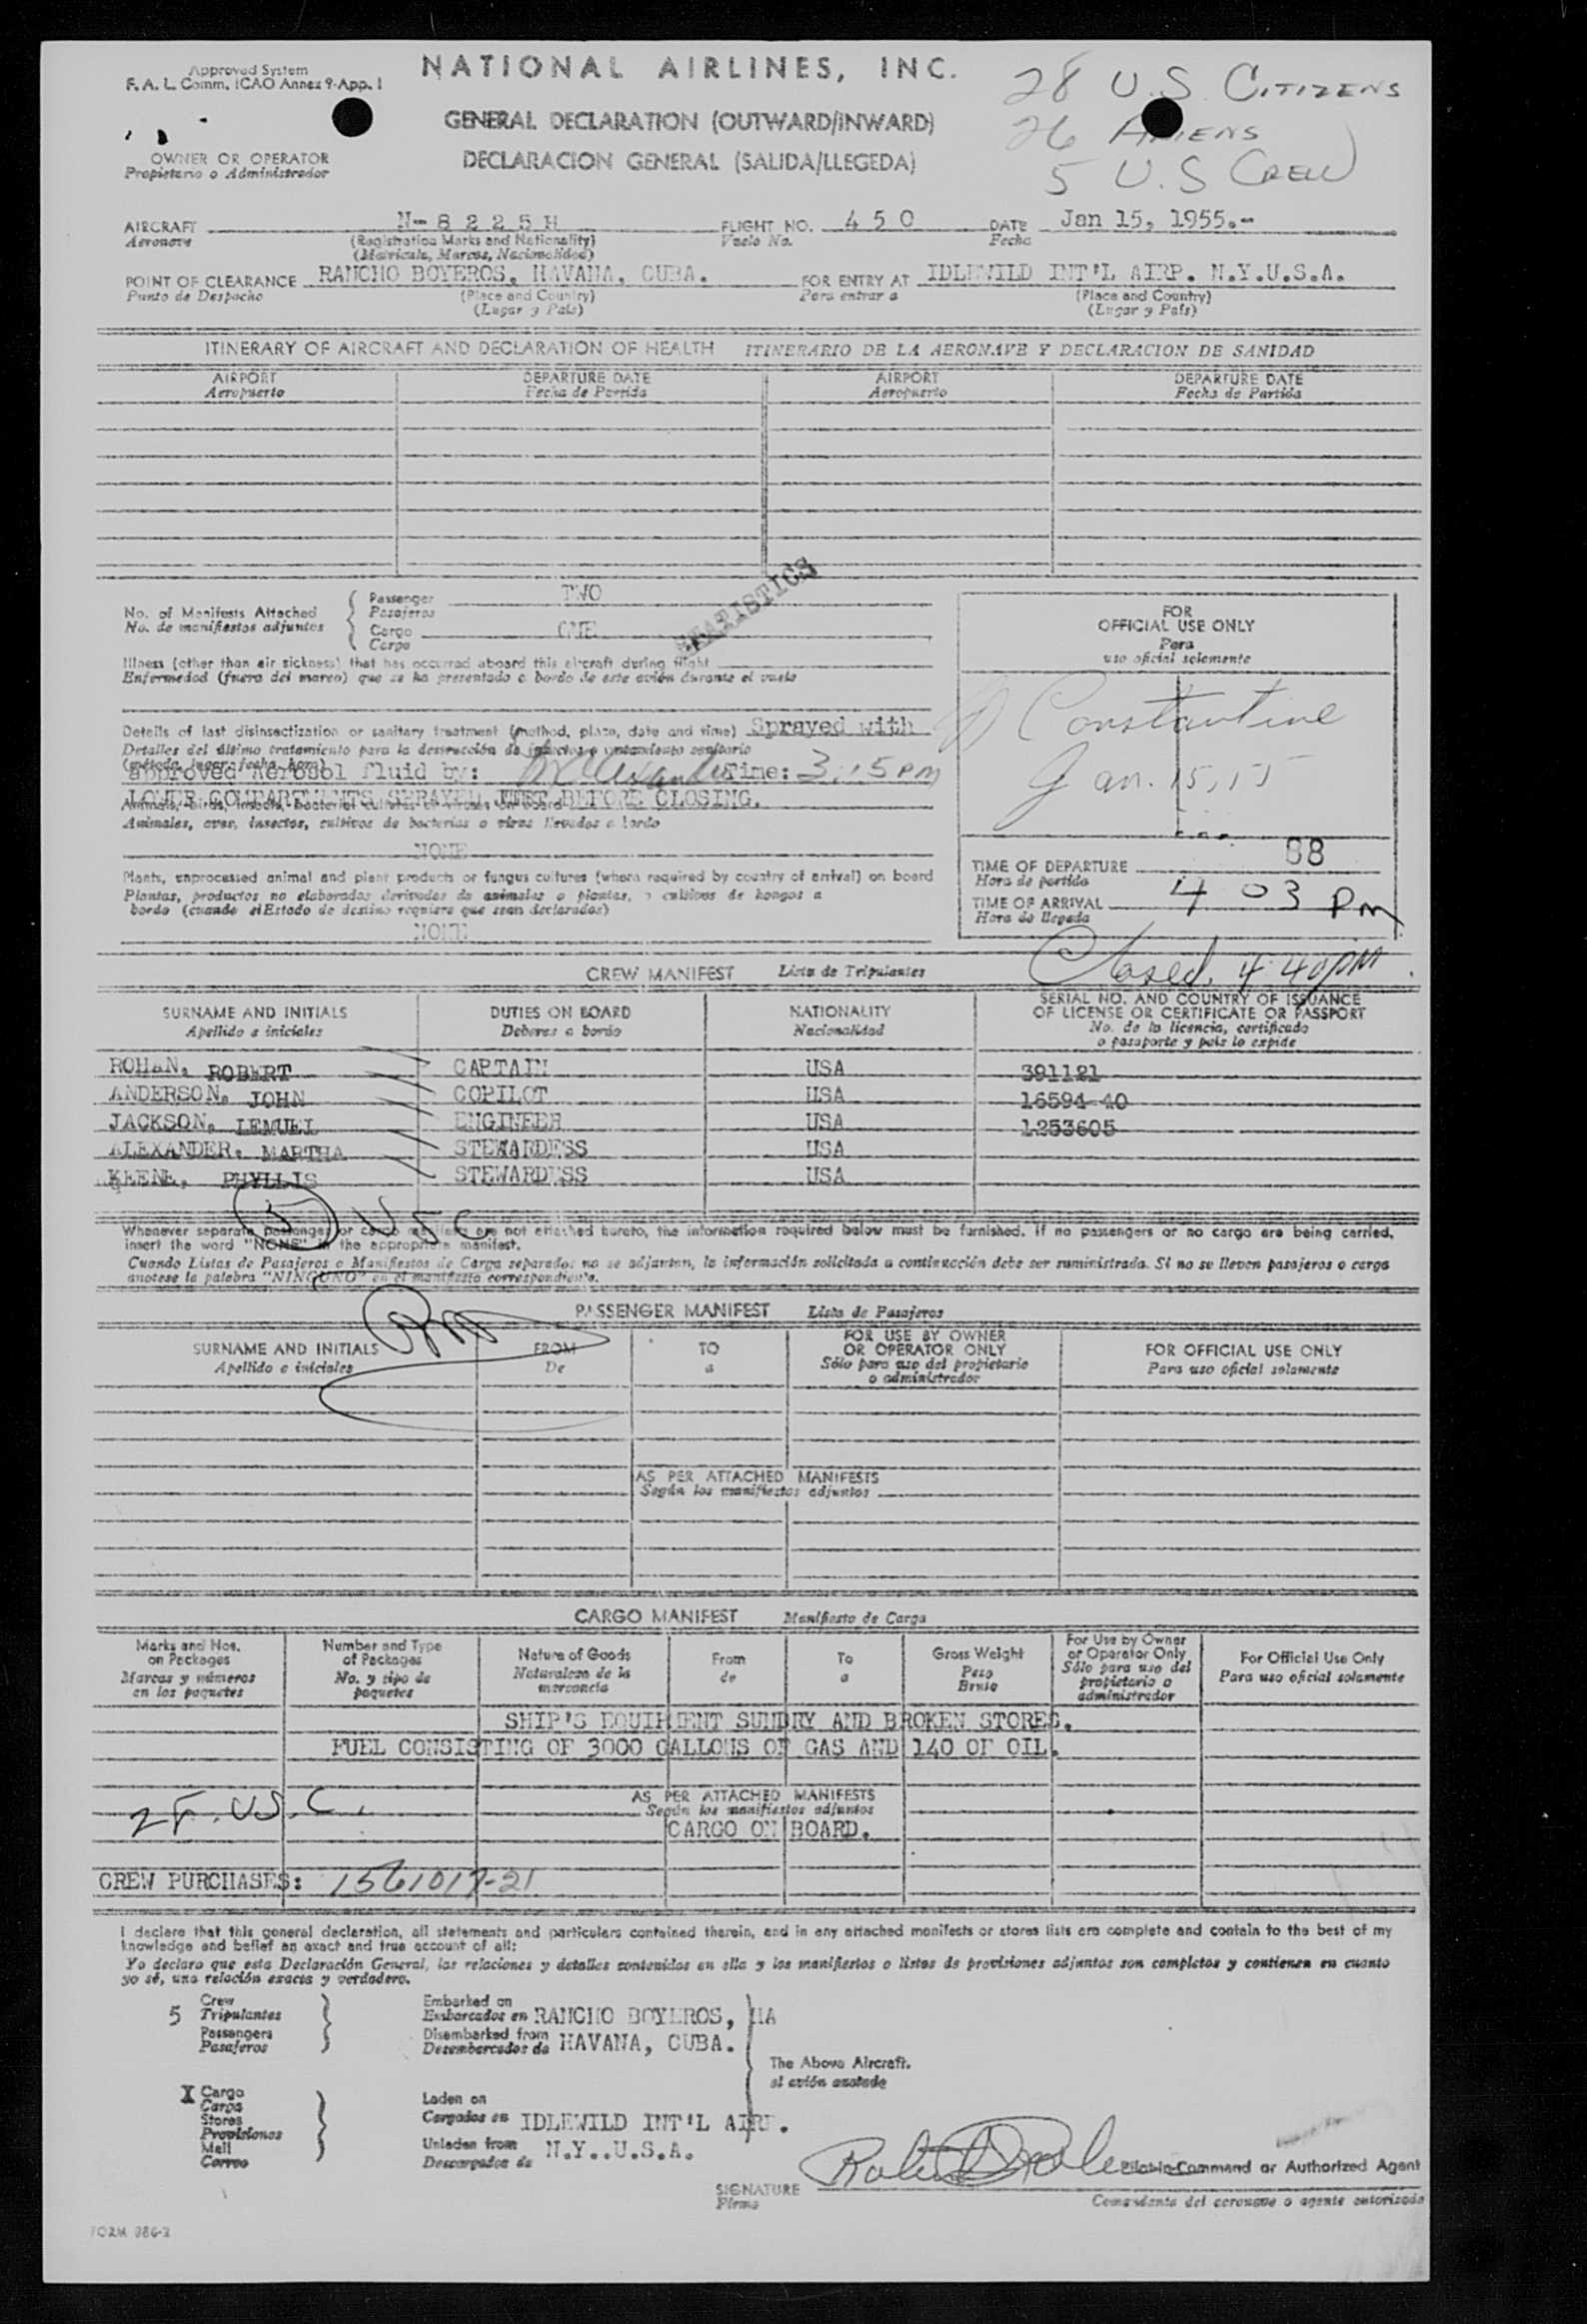 Approved System
F. A. L. Comm. ICAO Annex 9-App. 1
NATIONAL AIRLINES, INC.
GENERAL DECLARATION (OUTWARD/INWARD)
DECLARACION GENERAL (SALIDA/LLEGEDA)
28 U.S CITIZENS
26 ALIENS
5 U.S CREW
OWNER OR OPERATOR
Propietario o Administrador
AIRCRAFT N-8225H FLIGHT NO. 450 DATE Jan 15, 1955.-
Aeronave (Registration Marks and Nationality) Vuelo No. Fecha
(Matricula, Marcas, Nacionalidad)
POINT OF CLEARANCE RANCHO BOYEROS, HAVANA, CUBA. FOR ENTRY AT IDLEWILD INT'L AIRP. N.Y.U.S.A.
Punto de Despacho (Place and Country) Para entrar a (Place and Country)
(Lugar y País) (Lugar y País)
ITINERARY OF AIRCRAFT AND DECLARATION OF HEALTH ITINERARIO DE LA AERONAVE Y DECLARACION DE SANIDAD
AIRPORT DEPARTURE DATE AIRPORT DEPARTURE DATE
Aeropuerto Fecha de Partida Aeropuerto Fecha de Partida
STATISTICS
No. of Manifests Attached Passenger TWO
No. de manifiestos adjuntos Pasajeros
Cargo ONE
Carga
Illness (other than air sickness) that has occurred aboard this aircraft during flight
Enfermedad (fuera del mareo) que se ha presentado a bordo de este avión durante el vuelo
Details of last disinsectization or sanitary treatment (method, place, date and time) Sprayed with
Detalles del último tratamiento para la desinsección de insectos o untamiento sanitario
(método, lugar, fecha, hora)
approved Aerosol fluid by: M Alexander Time: 3:15 PM
LOWER COMPARTMENTS SPRAYED JUST BEFORE CLOSING.
Animals, birds, insects, bacterial cultures or viruses on board
Animales, aves, insectos, cultivos de bacterias o virus llevados a bordo
NONE
Plants, unprocessed animal and plant products or fungus cultures (where required by country of arrival) on board
Plantas, productos no elaborados derivados de animales o plantas, o cultivos de hongos a
bordo (cuando el Estado de destino requiere que sean declarados)
NONE
FOR
OFFICIAL USE ONLY
Para
uso oficial solamente
Constantine
Jan. 15, 55
88
TIME OF DEPARTURE
Hora de partida
TIME OF ARRIVAL 4 03 Pm
Hora de llegada
Closed. 4:40 PM
CREW MANIFEST Lista de Tripulantes
SURNAME AND INITIALS DUTIES ON BOARD NATIONALITY SERIAL NO. AND COUNTRY OF ISSUANCE
OF LICENSE OR CERTIFICATE OR PASSPORT
Apellido e iniciales Deberes a bordo Nacionalidad No. de la licencia, certificado
o pasaporte y país lo expide
ROHAN, ROBERT CAPTAIN USA 391121
ANDERSON, JOHN COPILOT USA 16594-40
JACKSON, LEMUEL ENGINEER USA 1253605
ALEXANDER, MARTHA STEWARDESS USA
KEENE, PHYLLIS STEWARDESS USA
5 USC
Whenever separate passenger or cargo manifests are not attached hereto, the information required below must be furnished. If no passengers or no cargo are being carried,
insert the word "NONE" in the appropriate manifest.
Cuando Listas de Pasajeros o Manifiestos de Carga separados no se adjuntan, la información solicitada a continuación debe ser suministrada. Si no se lleven pasajeros o carga
anotese la palabra "NINGUNO" en el manifiesto correspondiente.
PASSENGER MANIFEST Lista de Pasajeros
SURNAME AND INITIALS FROM TO FOR USE BY OWNER
OR OPERATOR ONLY FOR OFFICIAL USE ONLY
Apellido e iniciales De a Sólo para uso del propietario
o administrador Para uso oficial solamente
AS PER ATTACHED MANIFESTS
Según los manifiestos adjuntos
CARGO MANIFEST Manifiesto de Carga
Marks and Nos.
on Packages
Marcas y números
en los paquetes
Number and Type
of Packages
No. y tipo de
paquetes
Nature of Goods
Naturaleza de la
mercancia
From
de
To
a
Gross Weight
Peso
Bruto
For Use by Owner
or Operator Only
Sólo para uso del
propietario o
administrador
For Official Use Only
Para uso oficial solamente
SHIP'S EQUIPMENT SUNDRY AND BROKEN STORES.
FUEL CONSISTING OF 3000 GALLONS OF GAS AND 140 OF OIL.
AS PER ATTACHED MANIFESTS
Según los manifiestos adjuntos
CARGO ON BOARD.
U.S.C.
CREW PURCHASES: 1561017-21
I declare that this general declaration, all statements and particulars contained therein, and in any attached manifests or stores lists are complete and contain to the best of my
knowledge and belief an exact and true account of all:
Yo declaro que esta Declaración General, las relaciones y detalles contenidos en ella y los manifiestos o listas de provisiones adjuntos son completos y contienen en cuanto
yo sé, una relación exacta y verdadera.
5 Crew
Tripulantes
Passengers
Pasajeros
Embarked on
Embarcados en RANCHO BOYEROS, HA
Disembarked from
Desembarcados de HAVANA, CUBA.
The Above Aircraft.
el avión anotado
X Cargo
Carga
Stores
Provisiones
Mail
Correo
Laden on
Cargados en IDLEWILD INT'L AIRP.
Unladen from
Descargados de N.Y..U.S.A.
SIGNATURE
Firma
Pilot-in-Command or Authorized Agent
Comandante del aeronave o agente autorizado
FORM 886-2